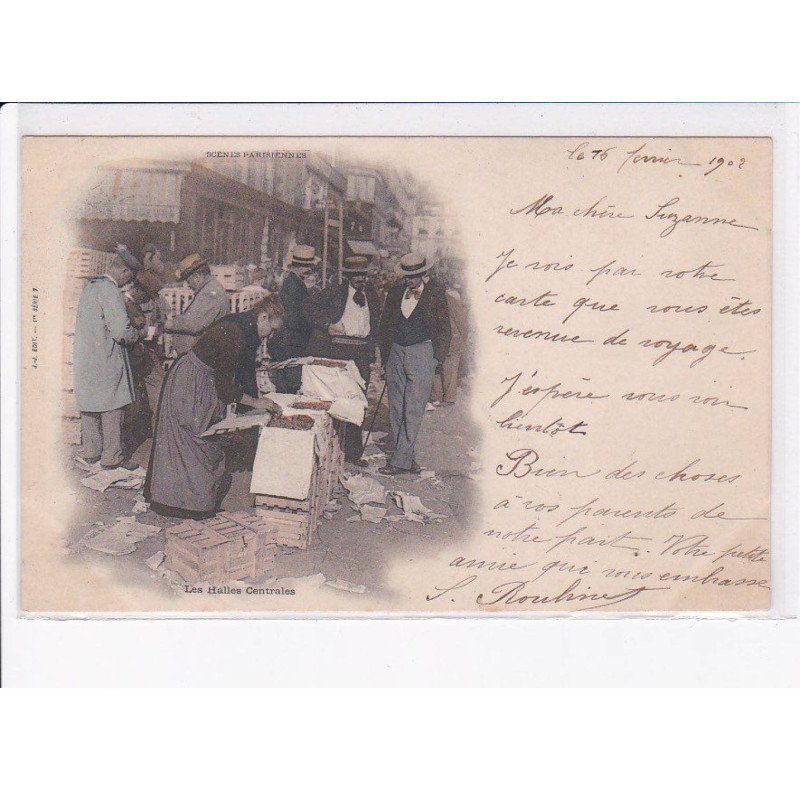 SCÈNES PARISIENNES
J.-J. ÉDIT. — 1re SÉRIE 7.
Les Halles Centrales
le 16 février 1902
Ma chère Suzanne
Je vois par votre
carte que vous êtes
revenue de voyage.
J'espère vous voir
bientôt
Bien des choses
à vos parents de
notre part. Votre petite
amie qui vous embrasse
S. Roulinet